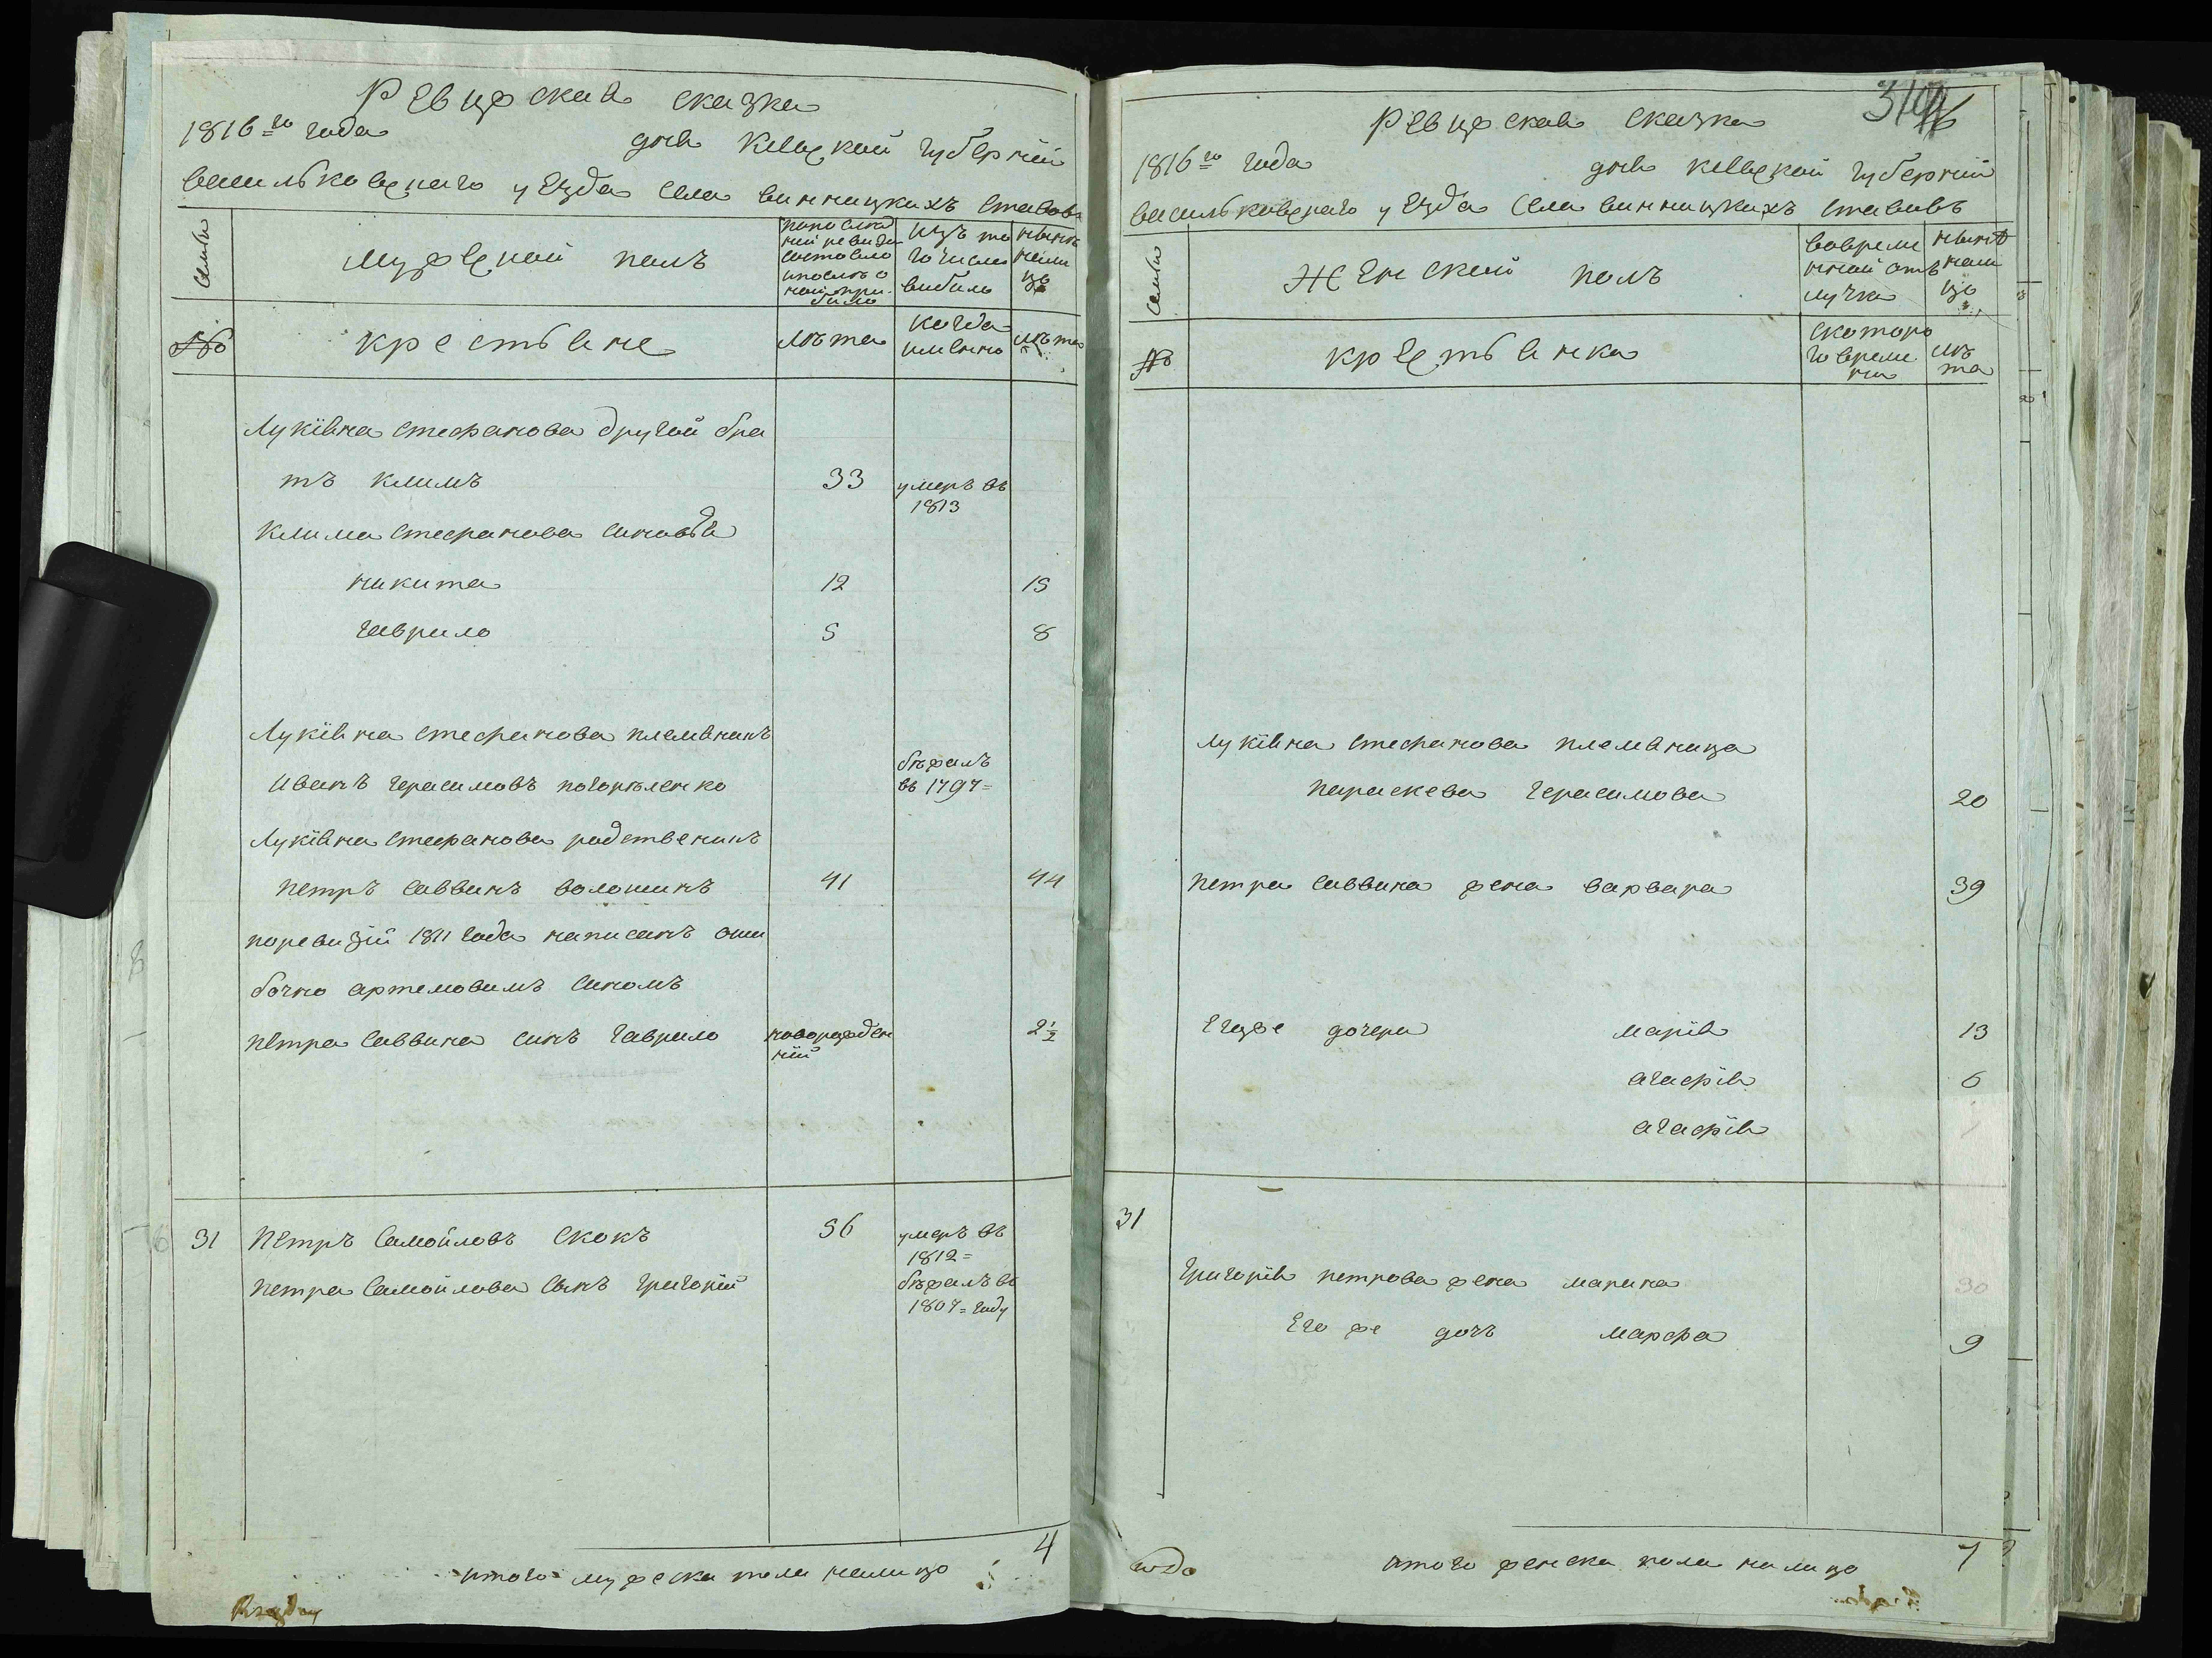 Ревижская сказка
1816го года
дня Киевской губернїи
васильковского уезда села винницкихъ ставовъ
Семьи
мужеской полъ
по последней ревизии состояло и после оной прибыло
изъ того числа выбыло
ныне на лицо
№
крестьяне
лѣта
когда именно
лѣта
Лукіяна стефанова другой бра
тъ климъ 33 умеръ въ 1813
клима стефанова синовья
никита 12 15
гаврило 5 8
Лукіяна стефанова племянникъ
иванъ герасимовъ погорѣленко бѣжалъ въ 1797=
Лукіяна стефанова родственикъ
петръ саввинъ волошинъ 41 44
поревизїи 1811 года написанъ оши
бочно артемовимъ синомъ
петра саввина синъ гаврило новорожденнїй 2½
31 петръ самойловъ скокъ 56 умеръ въ 1812=
петра самойлова синъ григорїй бѣжалъ въ 1807= году
итого мужеска пола налицо 4
Ревижская сказка
1816го года
дня Киевской губернїи
васильковского уезда села винницкихъ ставовъ
Семьи
женский полъ
вовременной отлучке
ныне на лицо
№
крестьянка
скоторого времени
лѣта
лукіяна стефанова племяница
параскева герасимова 20
петра саввина жена варвара 39
Егоже дочери марія 13
агафія 6
агафія 1
31
григорія петрова жена марина 30
Его же дочъ марфа 9
итого женска пола налицо 7